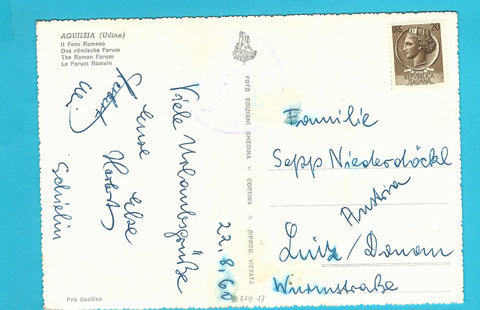 AQUILEIA (Udine)
Il Foro Romano
Das römische Forum
The Roman Forum
Le Forum Romain
22.8.60
Viele Urlaubsgrüße
Eure Else
Herbert
FOTO EDIZIONI GHEDINA :: CORTINA :: RIPROD. VIETATA
20
Familie
Sepp Niederdöckl
Austria
Linz/Donau
Wurmstraße
Pro Basilica
329 13